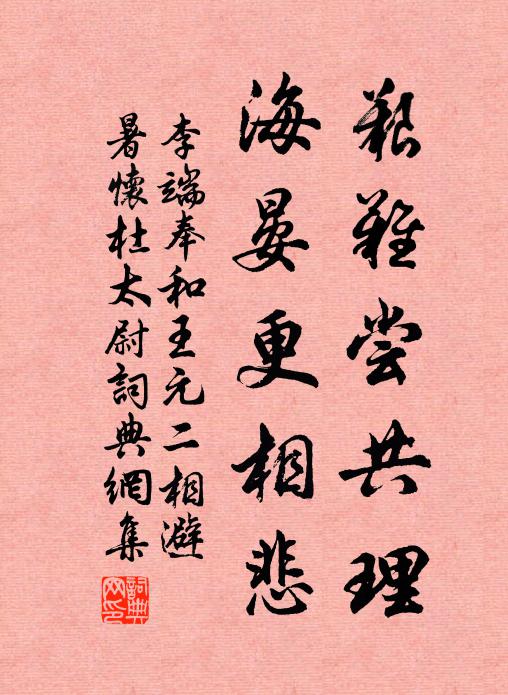 艱難嘗共理
海晏更相悲
李端奉和王元二相避
暑懷杜太尉詞典網集
詞典
网印